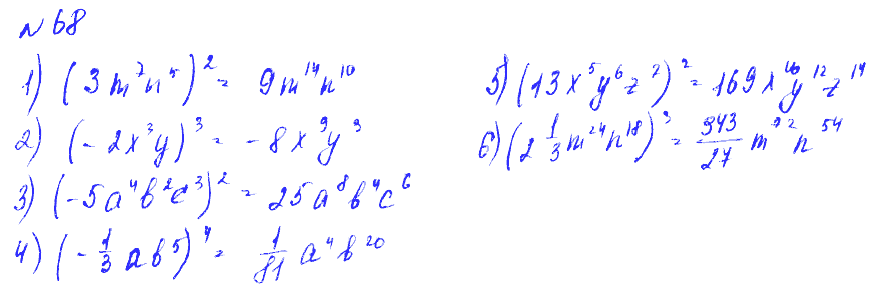 № 68
1) (3m⁷n⁵)² = 9m¹⁴n¹⁰
2) (-2x³y)³ = -8x⁹y³
3) (-5a⁴b²c³)² = 25a⁸b⁴c⁶
4) (-1/3 ab⁵)⁴ = 1/81 a⁴b²⁰
5) (13x⁵y⁶z⁷)² = 169x¹⁰y¹²z¹⁴
6) (2 1/3 m²⁴n¹⁸)³ = 343/27 m⁷²n⁵⁴